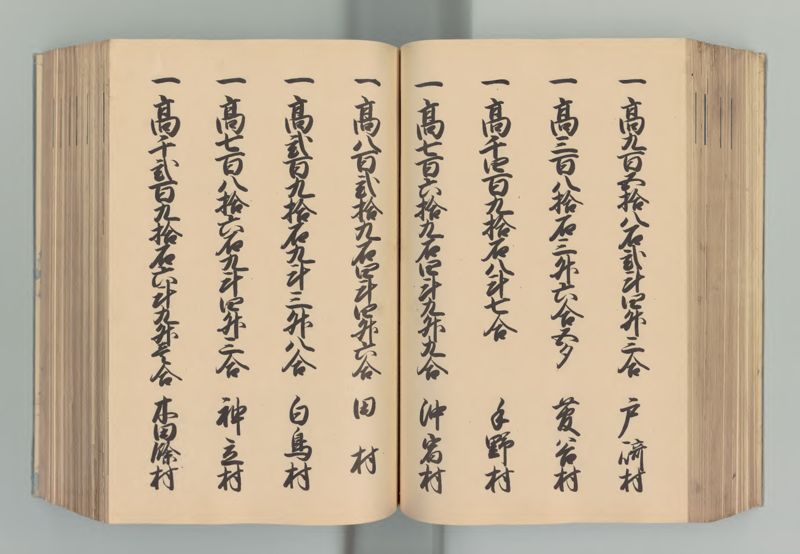 一高九百五拾八石弐斗四升三合 戸崎村
一高三百八拾石三升六合五夕 菱谷村
一高千四百九拾石八斗七合 手野村
一高七百六拾九石四斗九升九合 沖宿村
一高八百弐拾九石四斗四升六合 田村
一高弐百九拾石九斗三升八合 白鳥村
一高七百八拾六石九斗四升三合 神立村
一高千弐百九拾石六斗九升壱合 木田余村